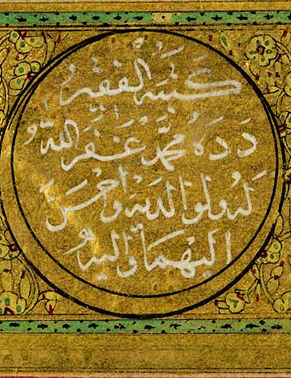 كتبه الفقير
دده محمد غفر الله
له ولوالديه واحسن
اليهما واليه